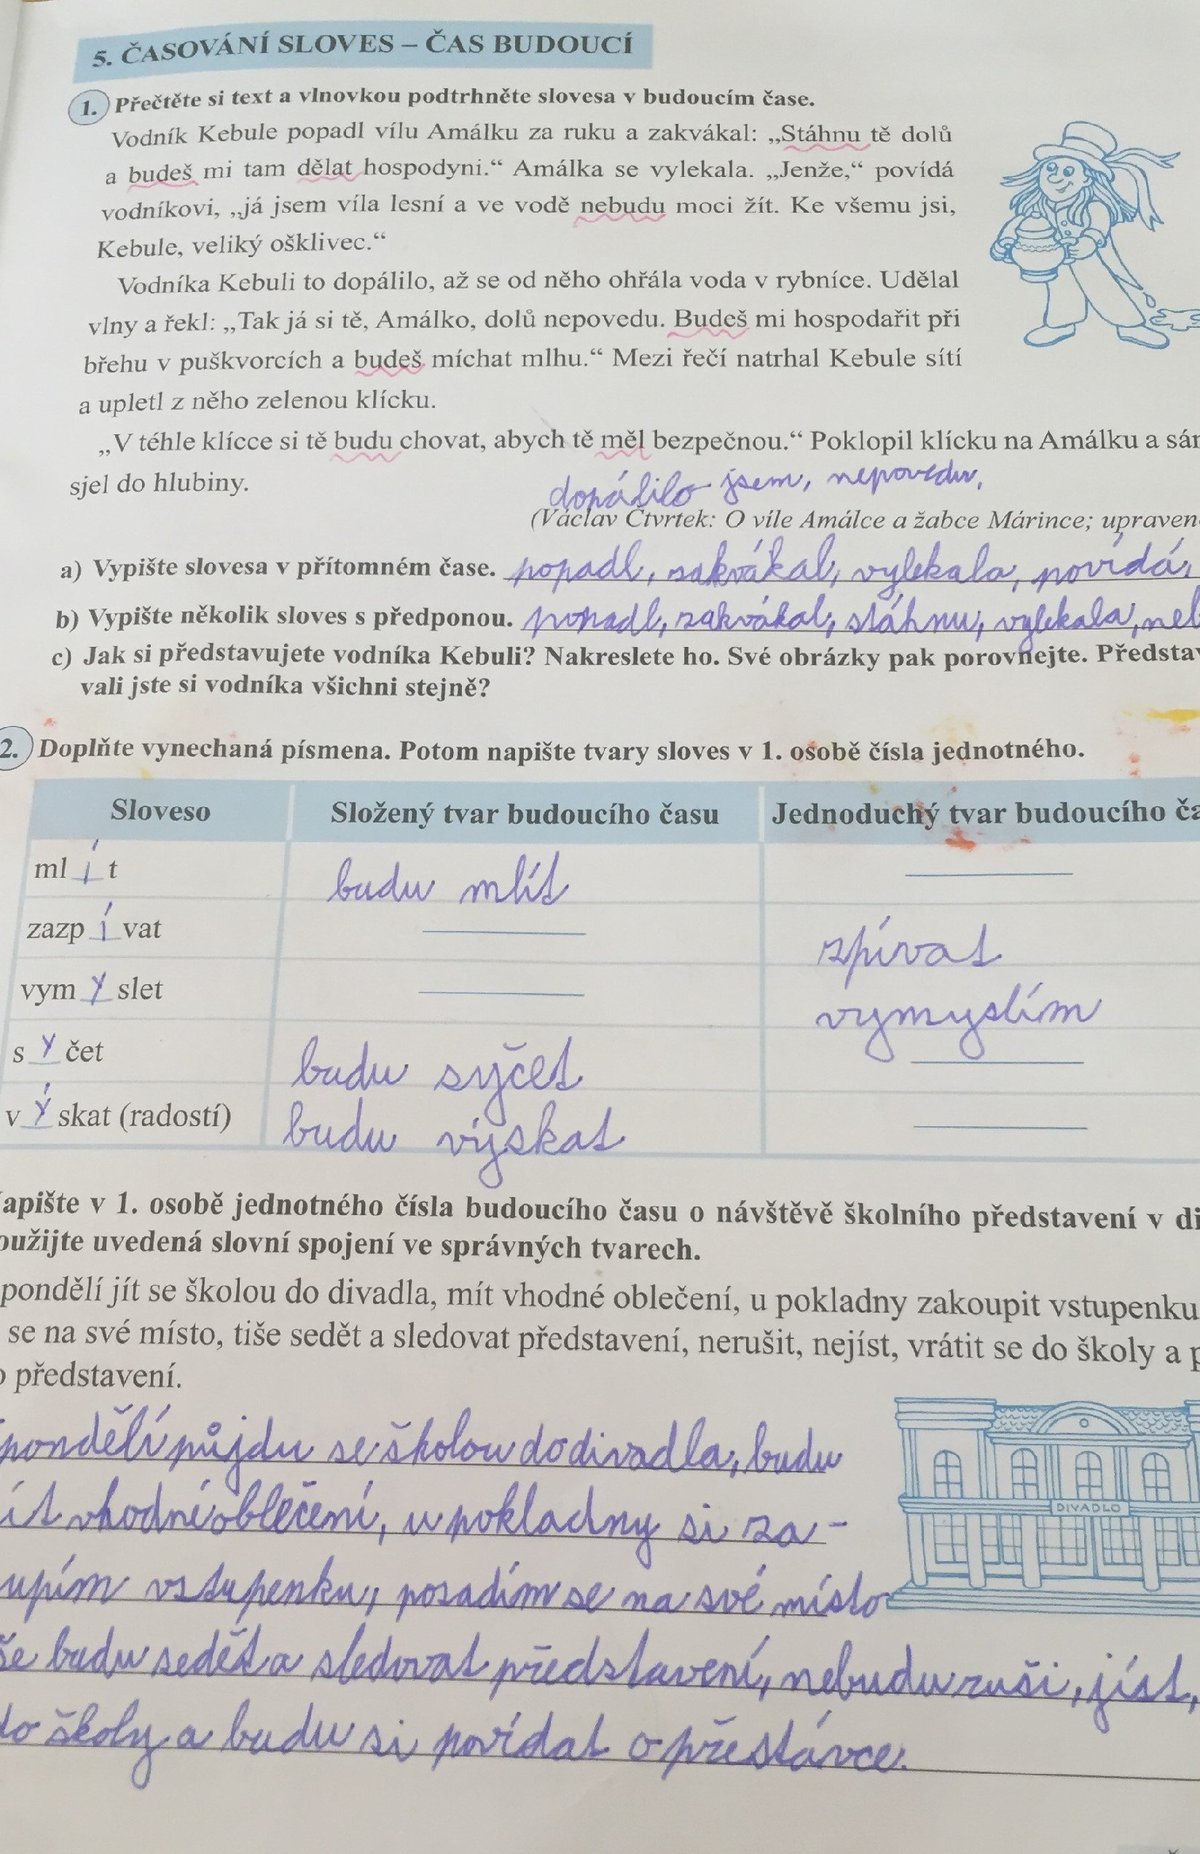 5. ČASOVÁNÍ SLOVES – ČAS BUDOUCÍ
1. Přečtěte si text a vlnovkou podtrhněte slovesa v budoucím čase.
Vodník Kebule popadl vílu Amálku za ruku a zakvákal: „Stáhnu tě dolů
a budeš mi tam dělat hospodyni.“ Amálka se vylekala. „Jenže,“ povídá
vodníkovi, „já jsem víla lesní a ve vodě nebudu moci žít. Ke všemu jsi,
Kebule, veliký ošklivec.“
Vodníka Kebuli to dopálilo, až se od něho ohřála voda v rybníce. Udělal
vlny a řekl: „Tak já si tě, Amálko, dolů nepovedu. Budeš mi hospodařit při
břehu v puškvorcích a budeš míchat mlhu.“ Mezi řečí natrhal Kebule sítí
a upletl z něho zelenou klícku.
„V téhle klícce si tě budu chovat, abych tě měl bezpečnou.“ Poklopil klícku na Amálku a sám
sjel do hlubiny.
dopálilo jsem, nepovedu,
(Václav Čtvrtek: O víle Amálce a žabce Márince; upraven
a) Vypište slovesa v přítomném čase. popadl, zakvákal, vylekala, povídá,
b) Vypište několik sloves s předponou. popadl, zakvákal, stáhnu, vylekala, neb
c) Jak si představujete vodníka Kebuli? Nakreslete ho. Své obrázky pak porovnejte. Představ
vali jste si vodníka všichni stejně?
2. Doplňte vynechaná písmena. Potom napište tvary sloves v 1. osobě čísla jednotného.
Sloveso Složený tvar budoucího času Jednoduchý tvar budoucího ča
ml í t budu mlít
zazp í vat zpívat
vym y slet vymyslím
s y čet budu syčet
v ý skat (radostí) budu výskat
apište v 1. osobě jednotného čísla budoucího času o návštěvě školního představení v di
oužijte uvedená slovní spojení ve správných tvarech.
pondělí jít se školou do divadla, mít vhodné oblečení, u pokladny zakoupit vstupenku
se na své místo, tiše sedět a sledovat představení, nerušit, nejíst, vrátit se do školy a p
o představení.
DIVADLO
pondělí půjdu se školou do divadla, budu
ít vhodné oblečení, u pokladny si za-
upím vstupenku, posadím se na své místo
še budu sedět a sledovat představení, nebudu ruši, jíst,
do školy a budu si povídat o přestávce.